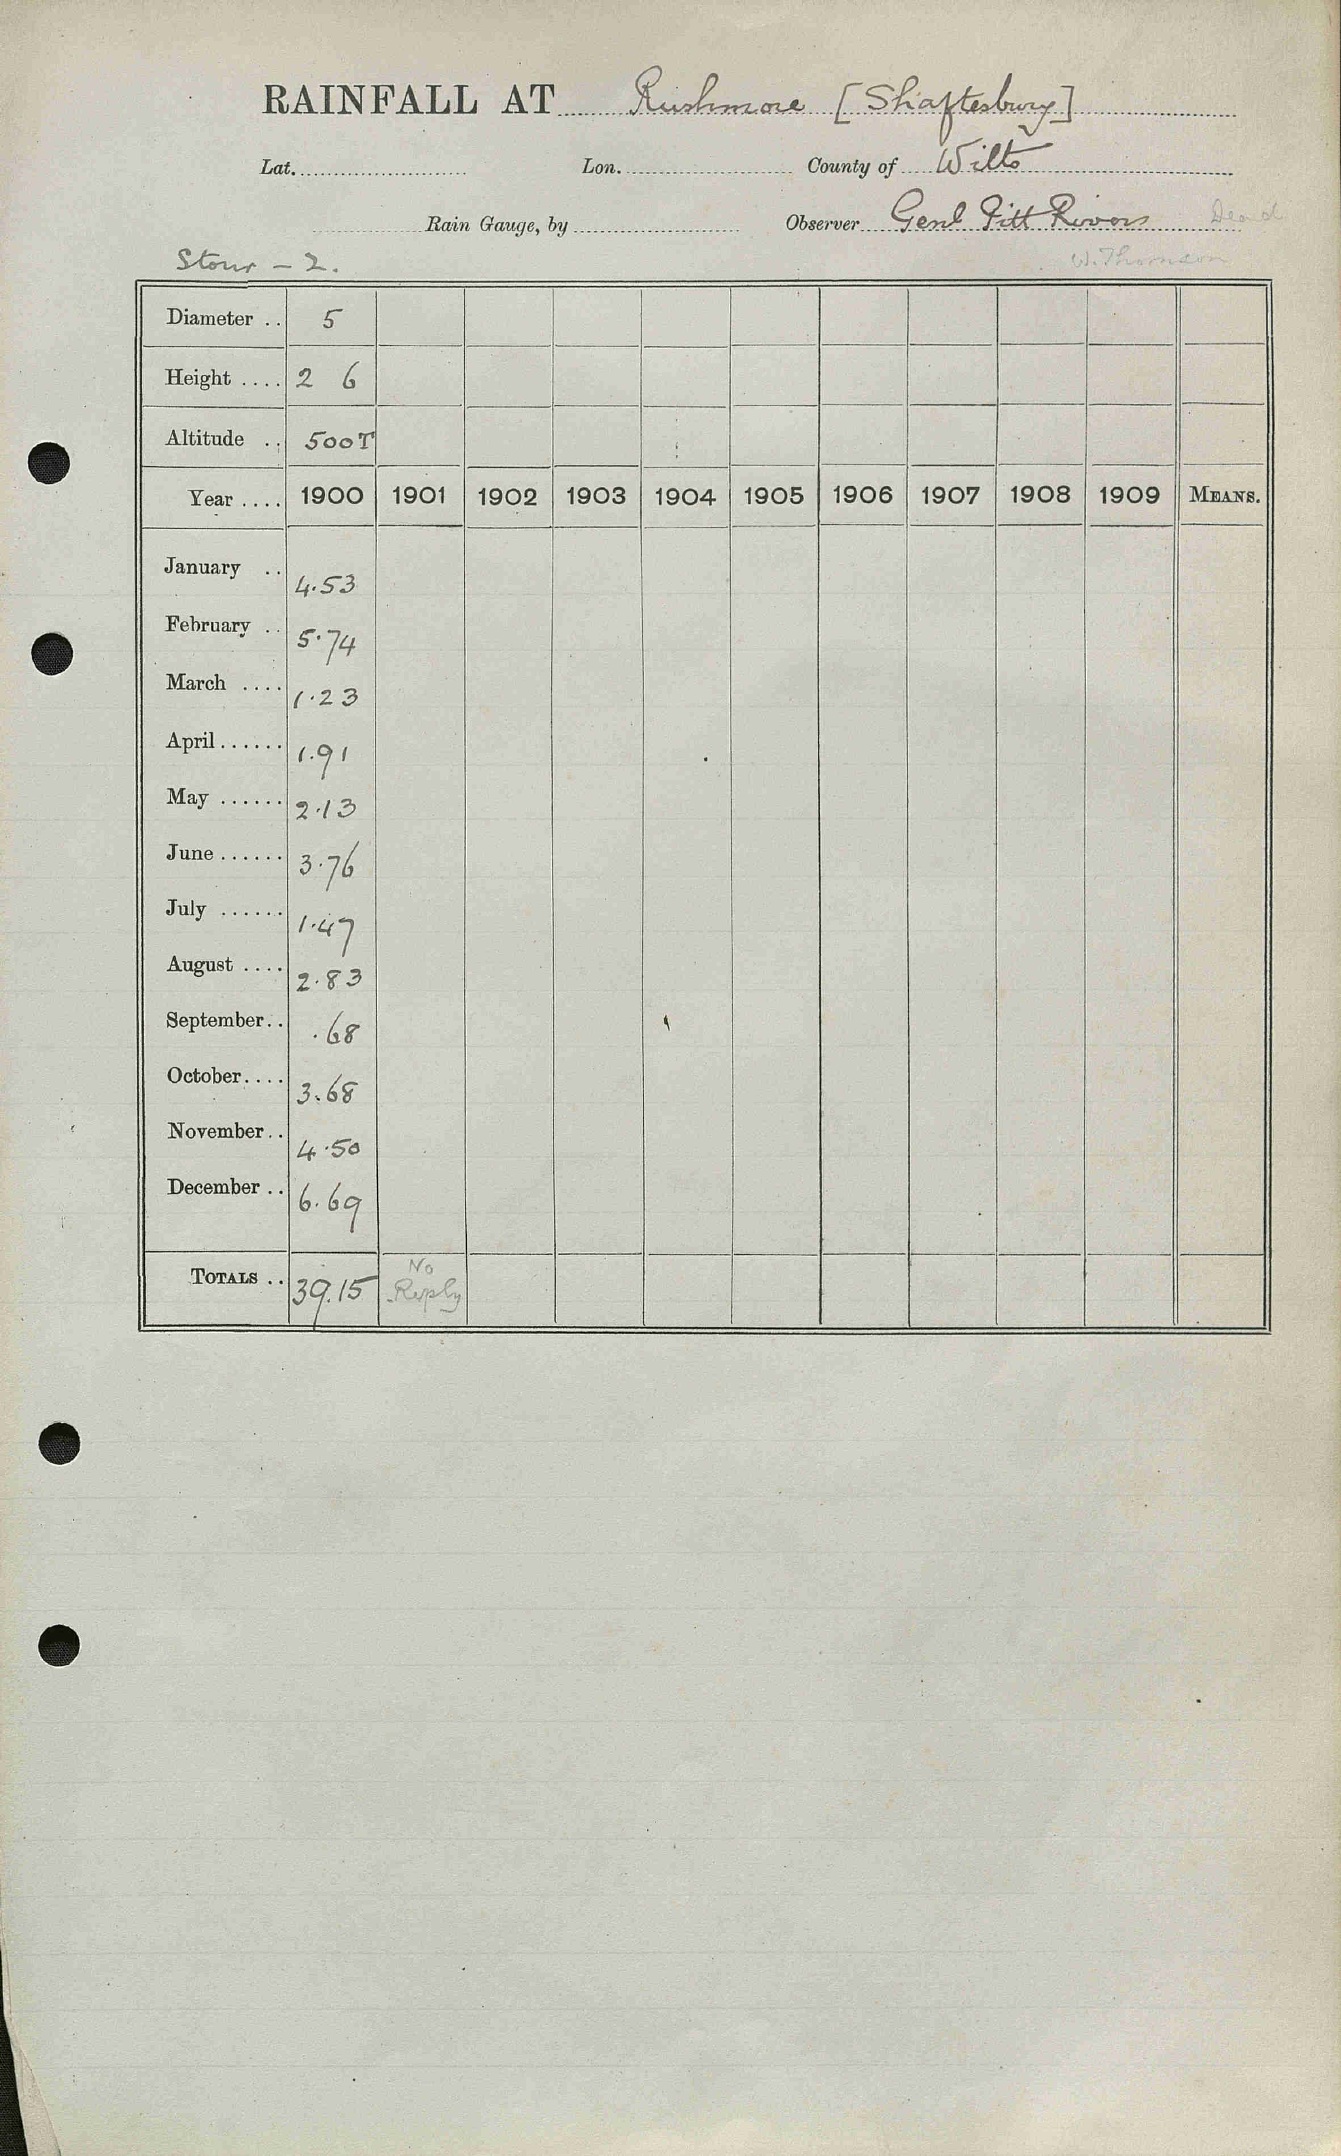 RAINFALL AT Rushmore [Shaftesbury]
Lat. Lon. County of Wilts
Rain Gauge, by Observer Genl Pitt Rivers Dead
Stour - 2. W. Thomson
Diameter .. 5
Height .... 2 6
Altitude .. 500T
Year .... 1900 1901 1902 1903 1904 1905 1906 1907 1908 1909 MEANS.
January .. 4.53
February .. 5.74
March .... 1.23
April ...... 1.91
May ...... 2.13
June ...... 3.76
July ...... 1.47
August .... 2.83
September .. .68
October .... 3.68
November .. 4.50
December .. 6.69
TOTALS .. 39.15 No Reply